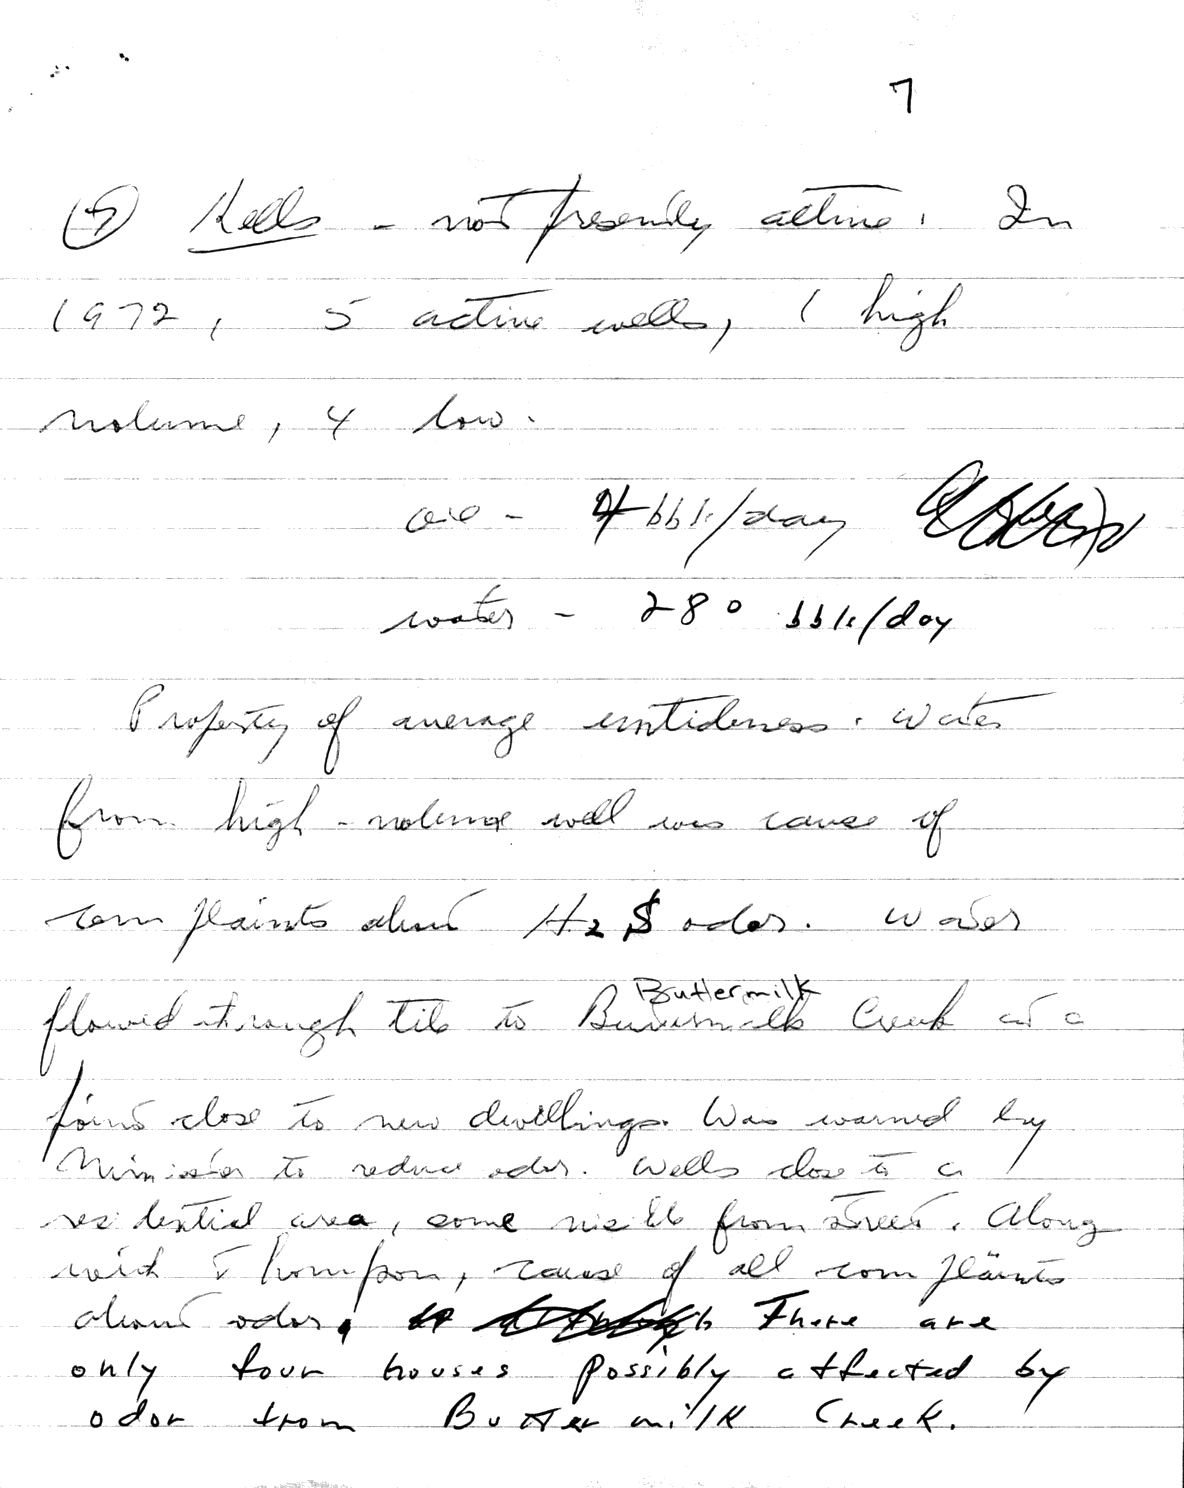 7
⑦ Kells - not presently active. In
1972, 5 active wells, 1 high
volume, 4 low.
oil - 4 bbls/day
water - 280 bbls/day
Property of average untidiness. Water
from high-volume well was cause of
complaints about H2S odor. Water
Buttermilk
flowed through tile to Buttermilk Creek at a
point close to new dwellings. Was warned by
Minister to reduce odor. Wells close to a
residential area, some visible from street. Along
with Thompson, cause of all complaints
about odor. There are
only four houses possibly affected by
odor from Buttermilk Creek.